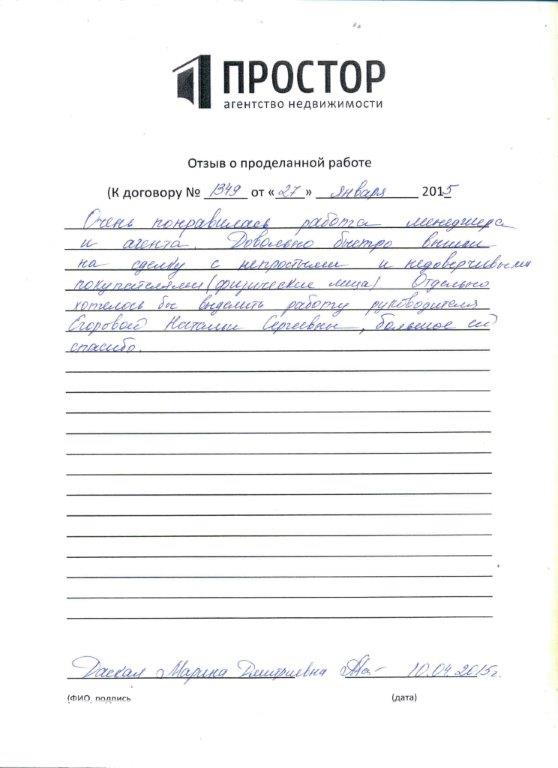 ПРОСТОР
агентство недвижимости
Отзыв о проделанной работе
(К договору № 1349 от «27» января 2015
Очень понравилась работа менеджера
и агента. Довольно быстро вышли
на сделку с непростыми и недоверчивыми
покупателями (физические лица) Отдельно
хотелось бы выделить работу руководителя
Егоровой Наталии Сергеевны, большое ей
спасибо.
Даскал Марина Дмитриевна 10.04.2015г.
(ФИО, подпись (дата)